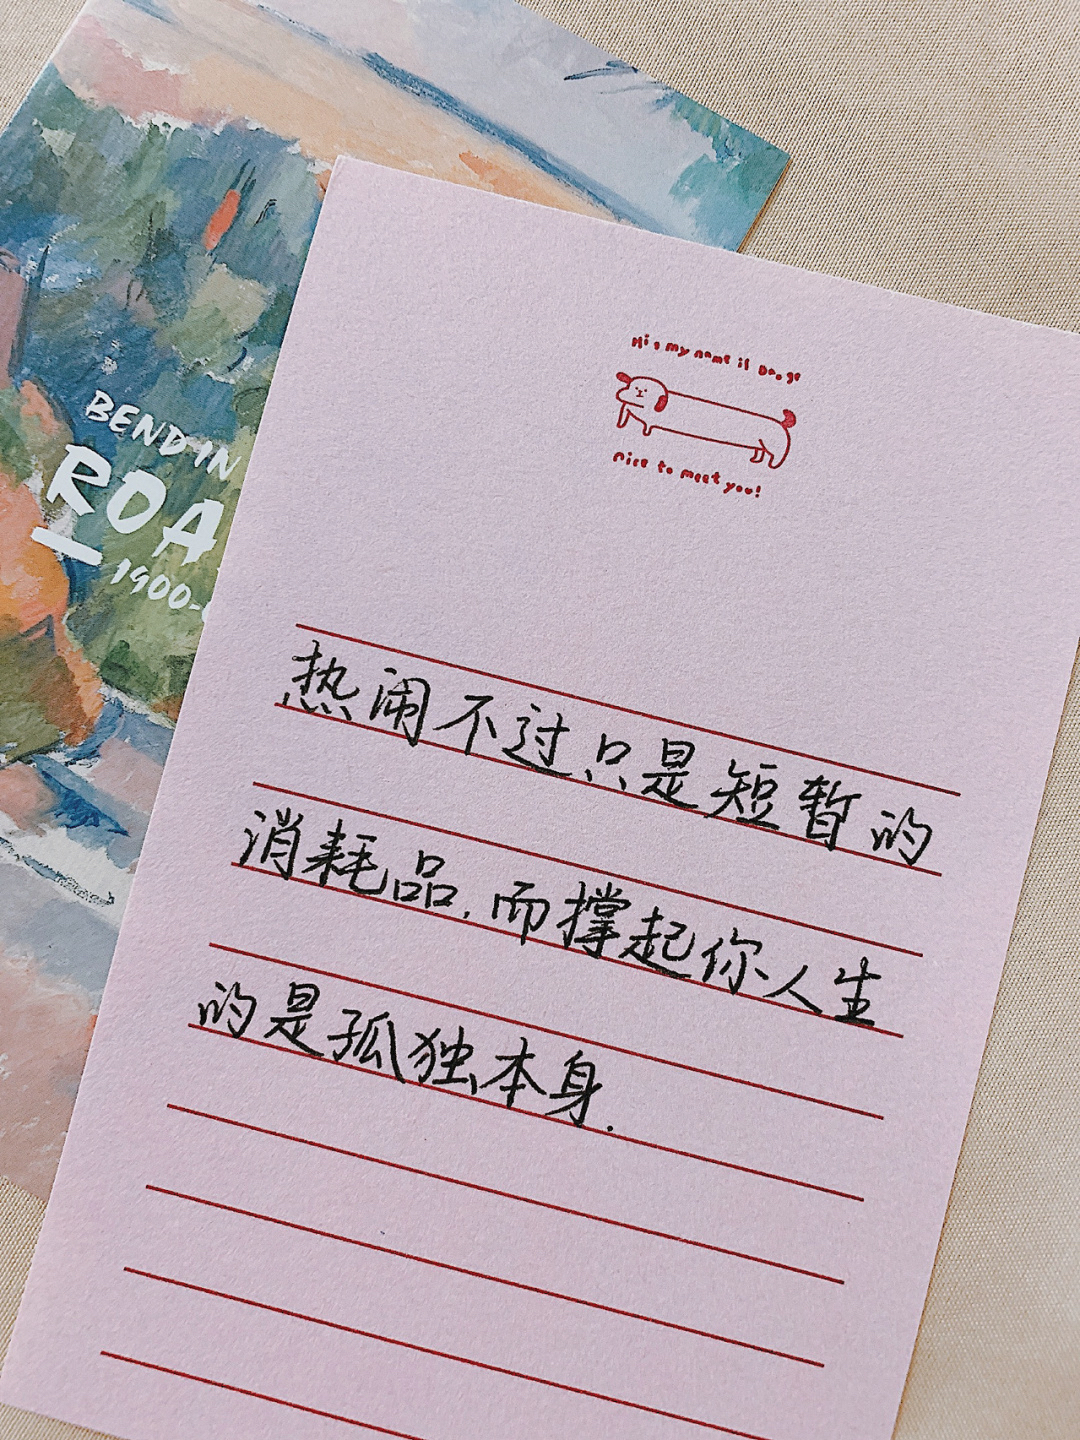 BENDIN
ROA
1900-
Hi, my name is Doge
nice to meet you!
热闹不过只是短暂的
消耗品.而撑起你人生
的是孤独本身.